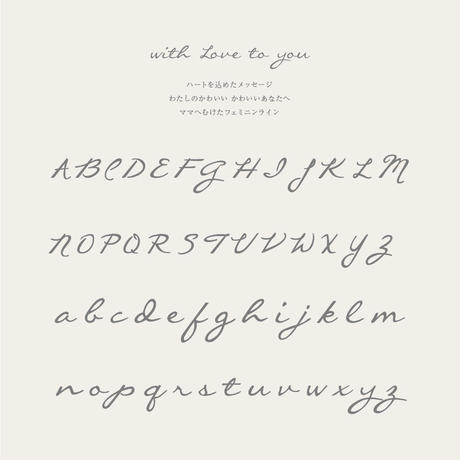 with Love to you
ハートを込めたメッセージ
わたしのかわいい かわいいあなたへ
ママへむけたフェミニンライン
A B C D E F G H I J K L M
N O P Q R S T U V W X Y Z
a b c d e f g h i j k l m
n o p q r s t u v w x y z